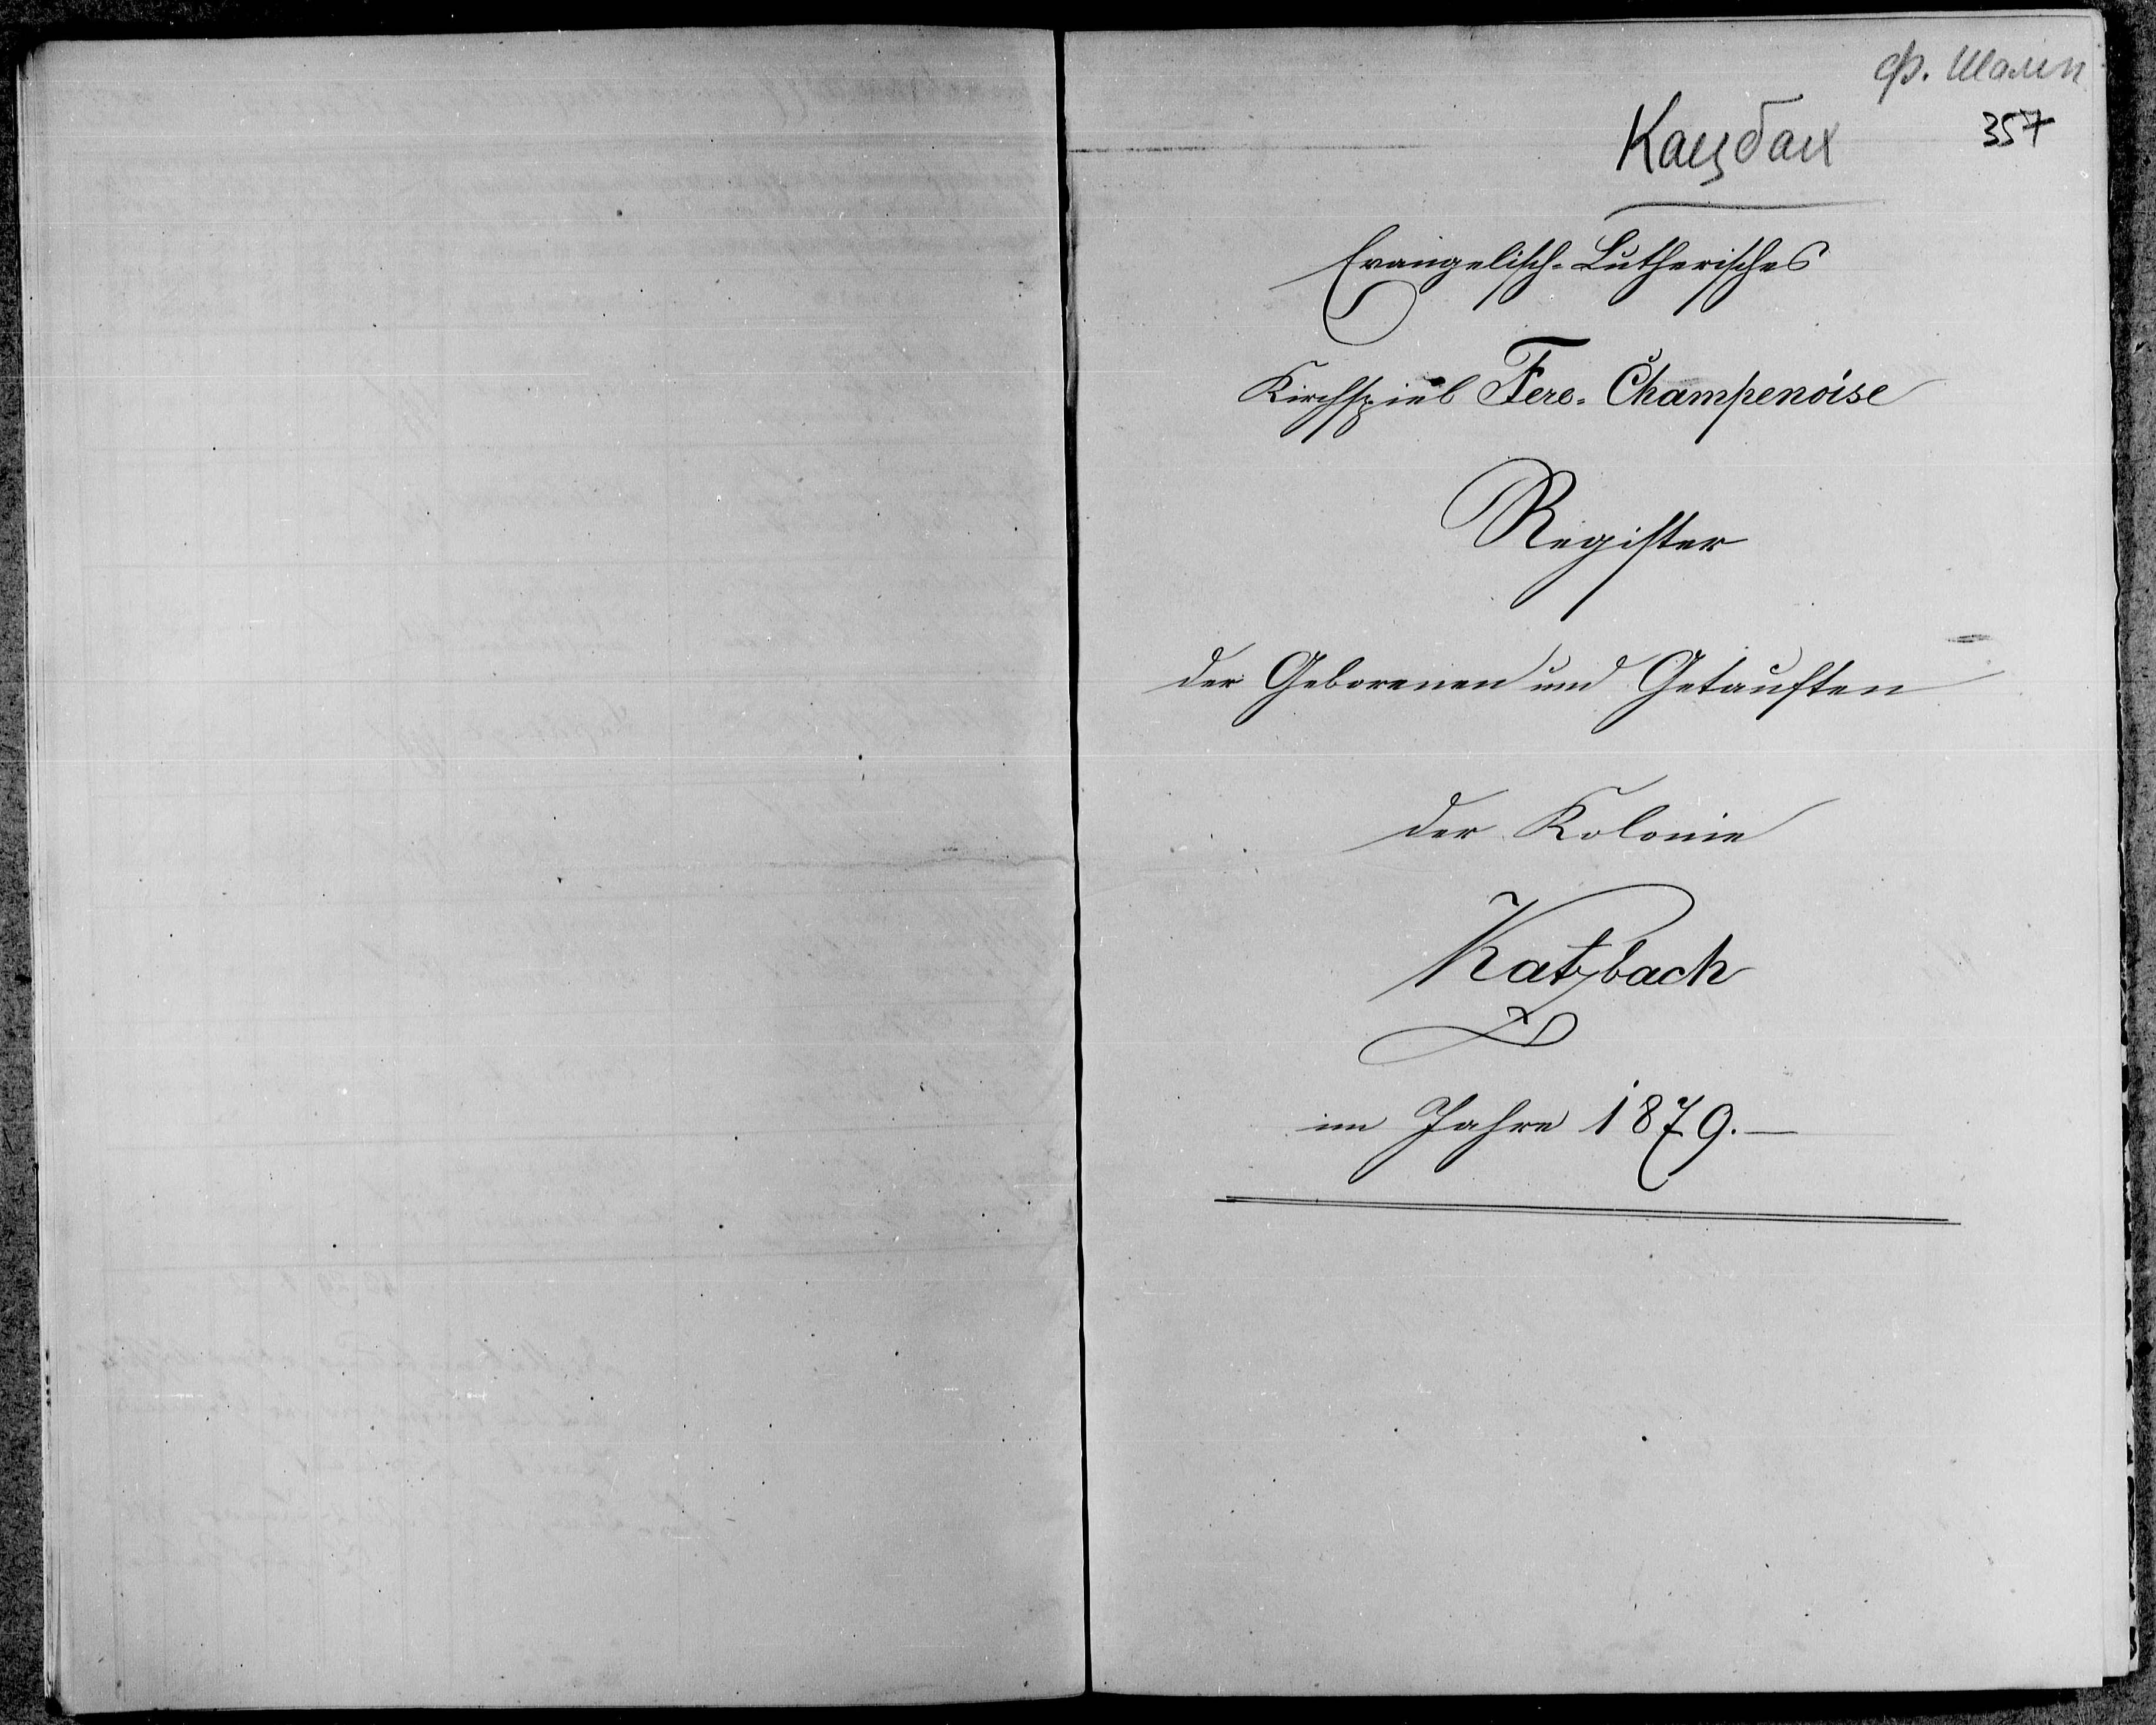 ф. Шамп
357
Кацбах
Evangelisch-Lutherisches
Kirchspiel Fere-Champenoise
Register
der Geborenen und Getauften
der Kolonie
Katzbach
im Jahre 1879.—